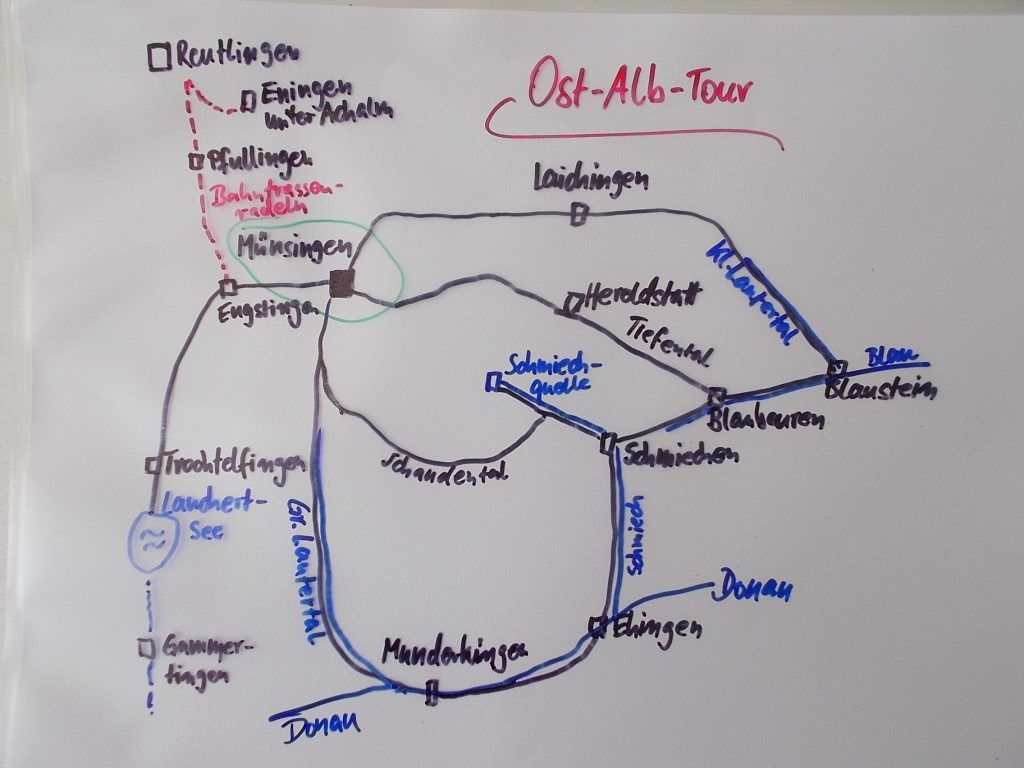 Reutlingen
Ost-Alb-Tour
Eningen
unter Achalm
Pfullingen
Bahntrassen-
radeln
Laichingen
Münsingen
Kl. Lautertal
Engstingen
Heroldstatt
Tiefental
Schmiech-
quelle
Blau
Blaustein
Blaubeuren
Schmiechen
Trochtelfingen
Schandental
Lauchert-
See
Gr. Lautertal
Schmiech
Donau
Ehingen
Gammer-
tingen
Munderkingen
Donau